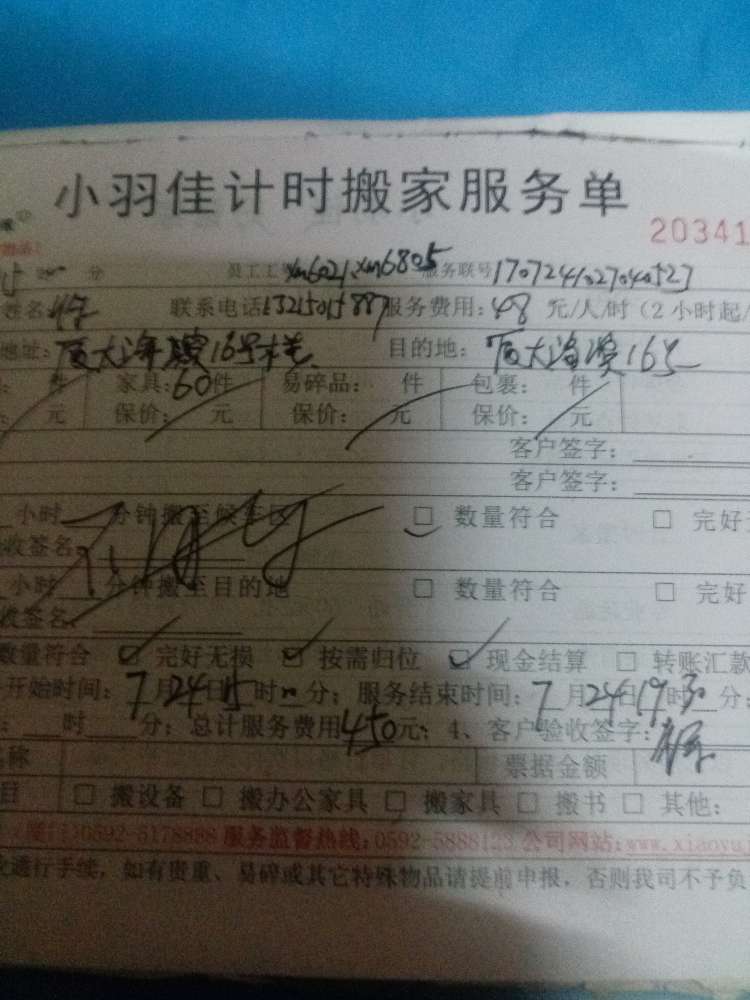 小羽佳计时搬家服务单
20341
分 员工工号 xm6021.xm6805 服务联号 1707241027040527
姓名 联系电话 13215015887 服务费用:48 元/人/时(2小时起/
地址:厦大海滨16号楼 目的地:厦大海滨16号
件 家具:60件 易碎品: 件 包裹: 件
元 保价: 元 保价: 元 保价: 元
客户签字:
客户签字:
小时 分钟搬至候车区 □ 数量符合 □ 完好
收签名
小时 分钟搬至目的地 □ 数量符合 □ 完好
收签名
数量符合 ☑ 完好无损 ☑ 按需归位 ☑ 现金结算 □ 转账汇款
开始时间:7月24日15时 分;服务结束时间:7月24日19时30分;
时 分;总计服务费用450元;4、客户验收签字:
称 票据金额
目 □ 搬设备 □ 搬办公家具 □ 搬家具 □ 搬书 □ 其他:
0592-5178888 服务监督热线:0592-5888123 公司网站:www.xiaoyuj
进行手续,如有贵重、易碎或其它特殊物品请提前申报,否则我司不予负